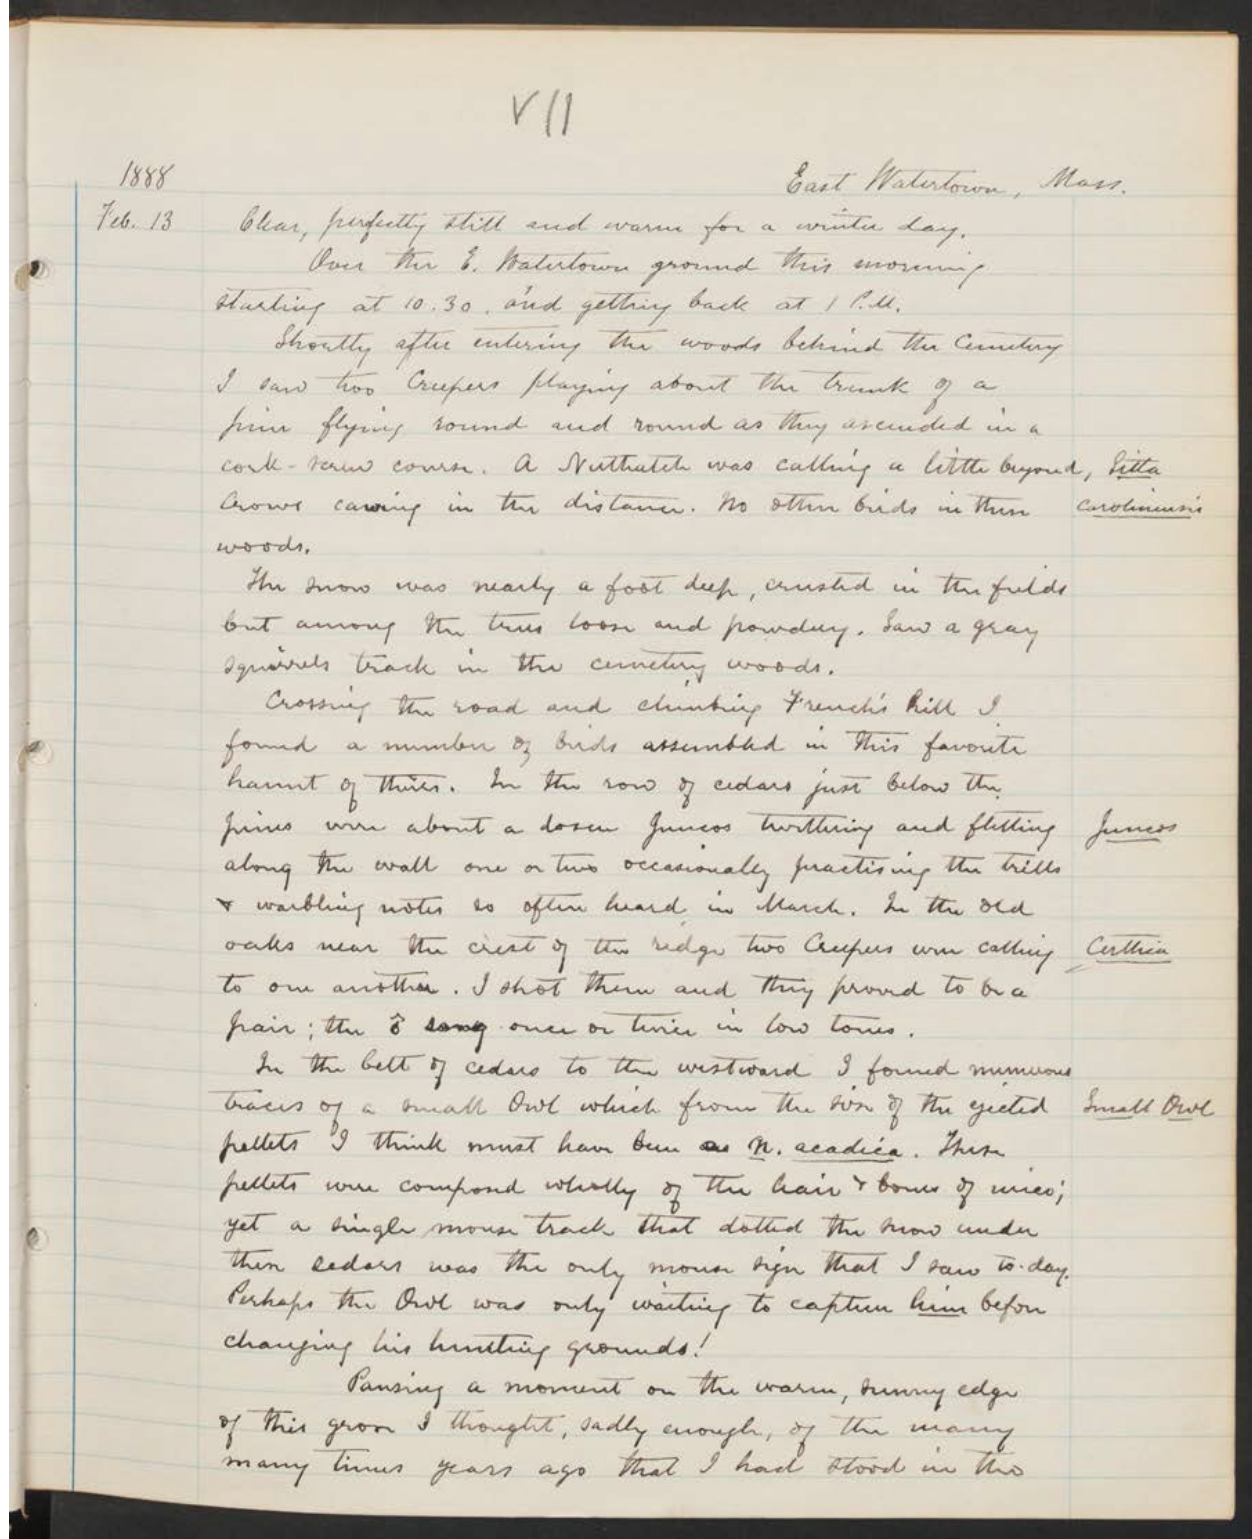 VII
1888
East Watertown, Mass.
Feb. 13 Clear, perfectly still and warm for a winter day.
Over the E. Watertown ground this morning
starting at 10.30. and getting back at 1 P.M.
Shortly after entering the woods behind the Cemetery
I saw two Creepers playing about the trunk of a
pine flying round and round as they ascended in a
cork-screw course. A Nuthatch was calling a little beyond, Sitta
Crows cawing in the distance. No other birds in these carolinensis
woods.
The snow was nearly a foot deep, crusted in the fields
but among the trees loose and powdery. Saw a gray
squirrels track in the cemetery woods.
Crossing the road and climbing French's hill I
found a number of birds assembled in this favorite
haunt of theirs. In the row of cedars just below the
pines were about a dozen Juncos twittering and flitting Juncos
along the wall one or two occasionally practising the trills
& warbling notes so often heard in March. In the old
oaks near the crest of the ridge two Creepers were calling Certhia
to one another. I shot them and they proved to be a
pair; the ♂ sang once or twice in low tones.
In the belt of cedars to the westward I found numerous
traces of a small Owl which from the size of the ejected Small Owl
pellets I think must have been N. acadica. These
pellets were composed wholly of the hair & bones of mice;
yet a single mouse track that dotted the snow under
these cedars was the only mouse sign that I saw to-day.
Perhaps the Owl was only waiting to capture him before
changing his hunting grounds!
Pausing a moment on the warm, sunny edge
of this grove I thought, sadly enough, of the many
many times years ago that I had stood in the